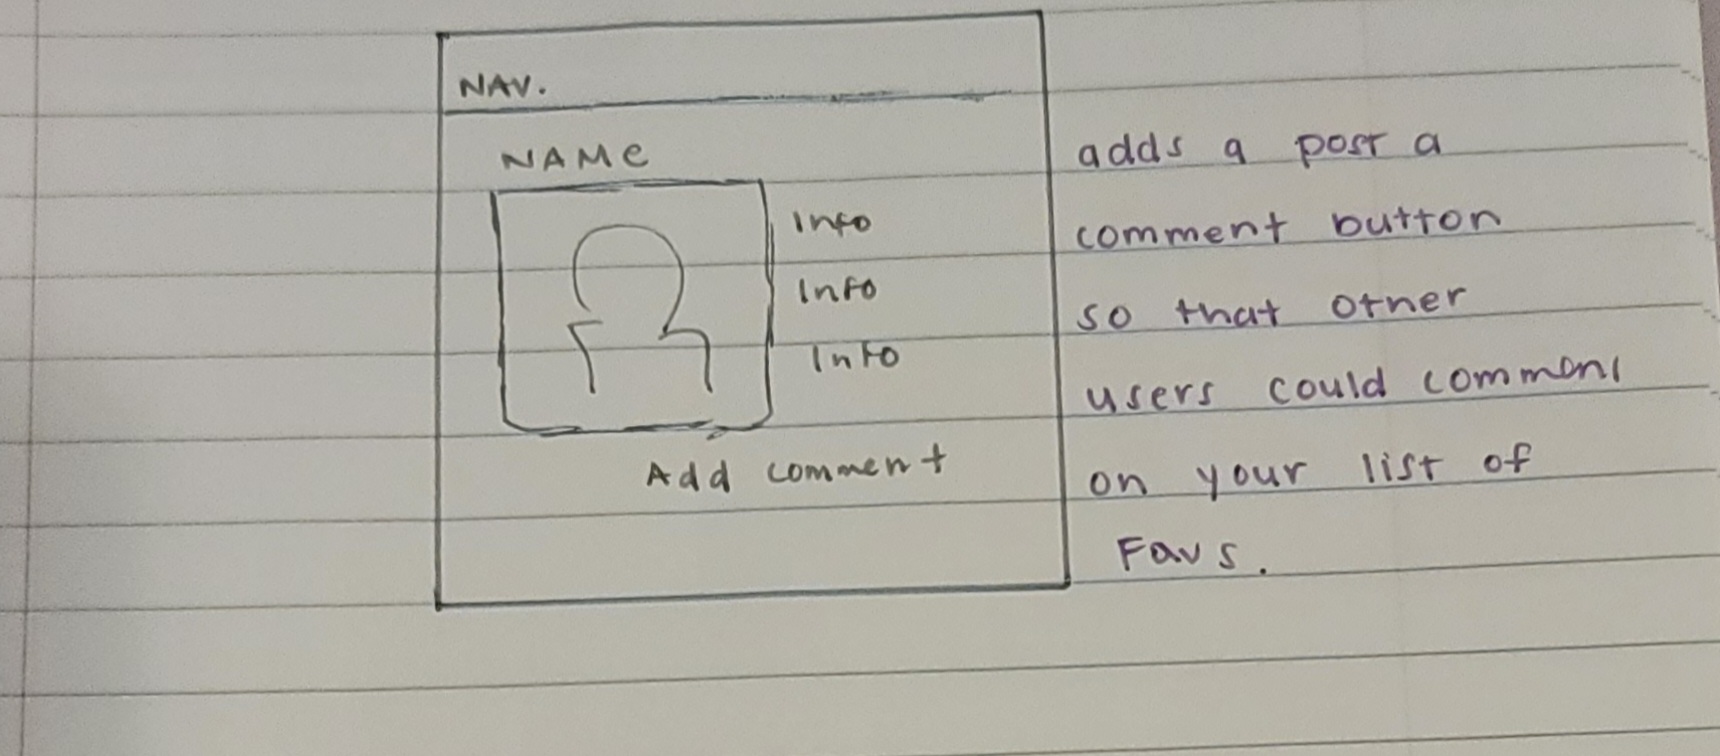 NAV.
NAMe
Info
Info
Info
Add comment
adds a post a
comment button
so that other
users could comment
on your list of
Favs.